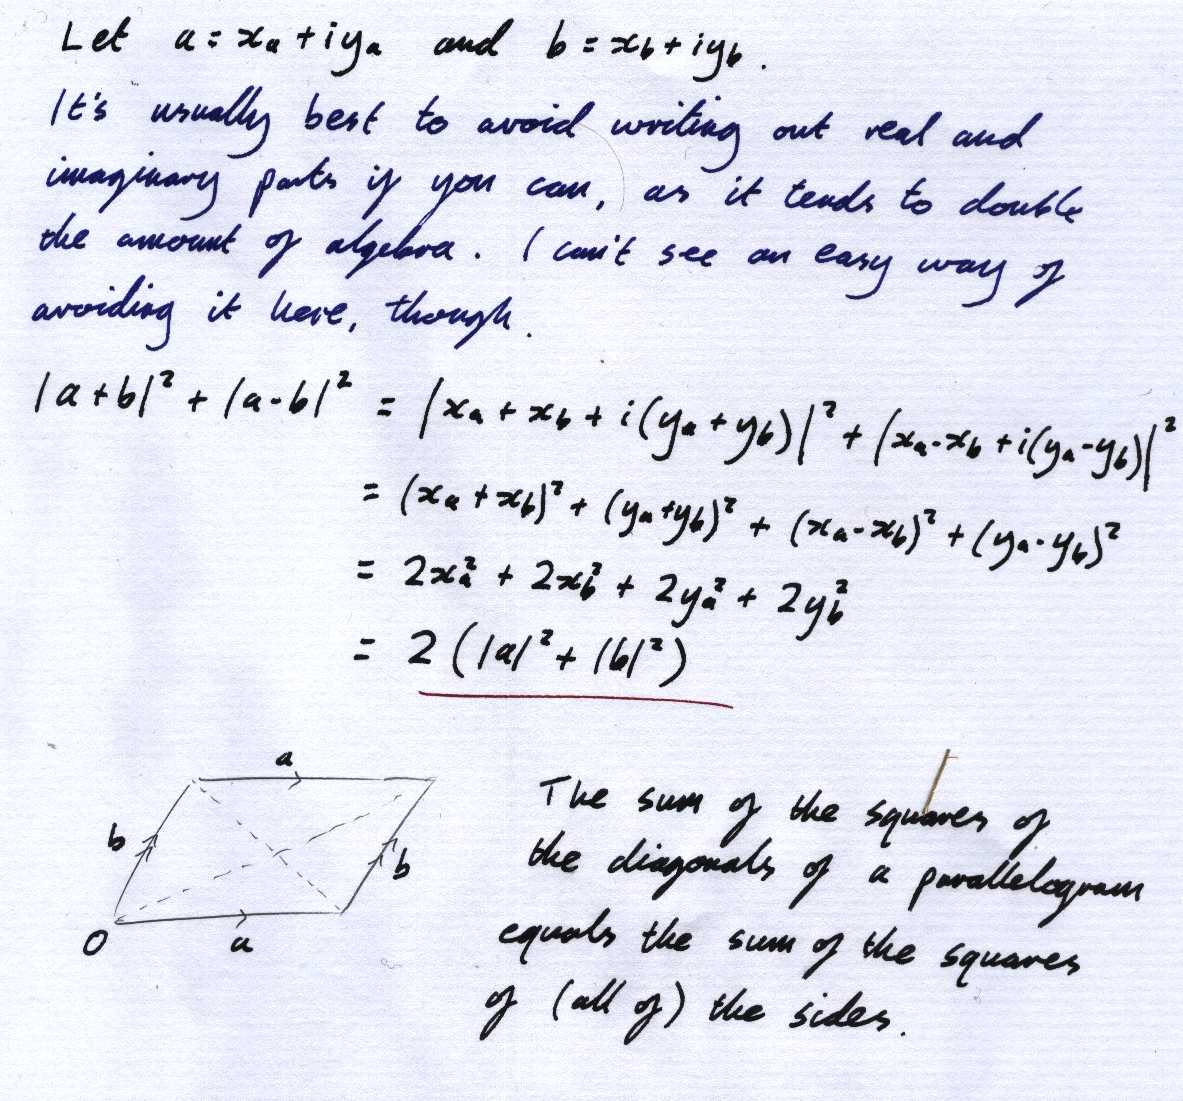 Let a = xₐ + iyₐ and b = x_b + iy_b.
It's usually best to avoid writing out real and
imaginary parts if you can, as it tends to double
the amount of algebra. I can't see an easy way of
avoiding it here, though.
|a+b|² + |a-b|² = |xₐ + x_b + i(yₐ + y_b)|² + |xₐ - x_b + i(yₐ - y_b)|²
= (xₐ + x_b)² + (yₐ + y_b)² + (xₐ - x_b)² + (yₐ - y_b)²
= 2xₐ² + 2x_b² + 2yₐ² + 2y_b²
= 2(|a|² + |b|²)
a
b
b
O
a
The sum of the squares of
the diagonals of a parallelogram
equals the sum of the squares
of (all of) the sides.